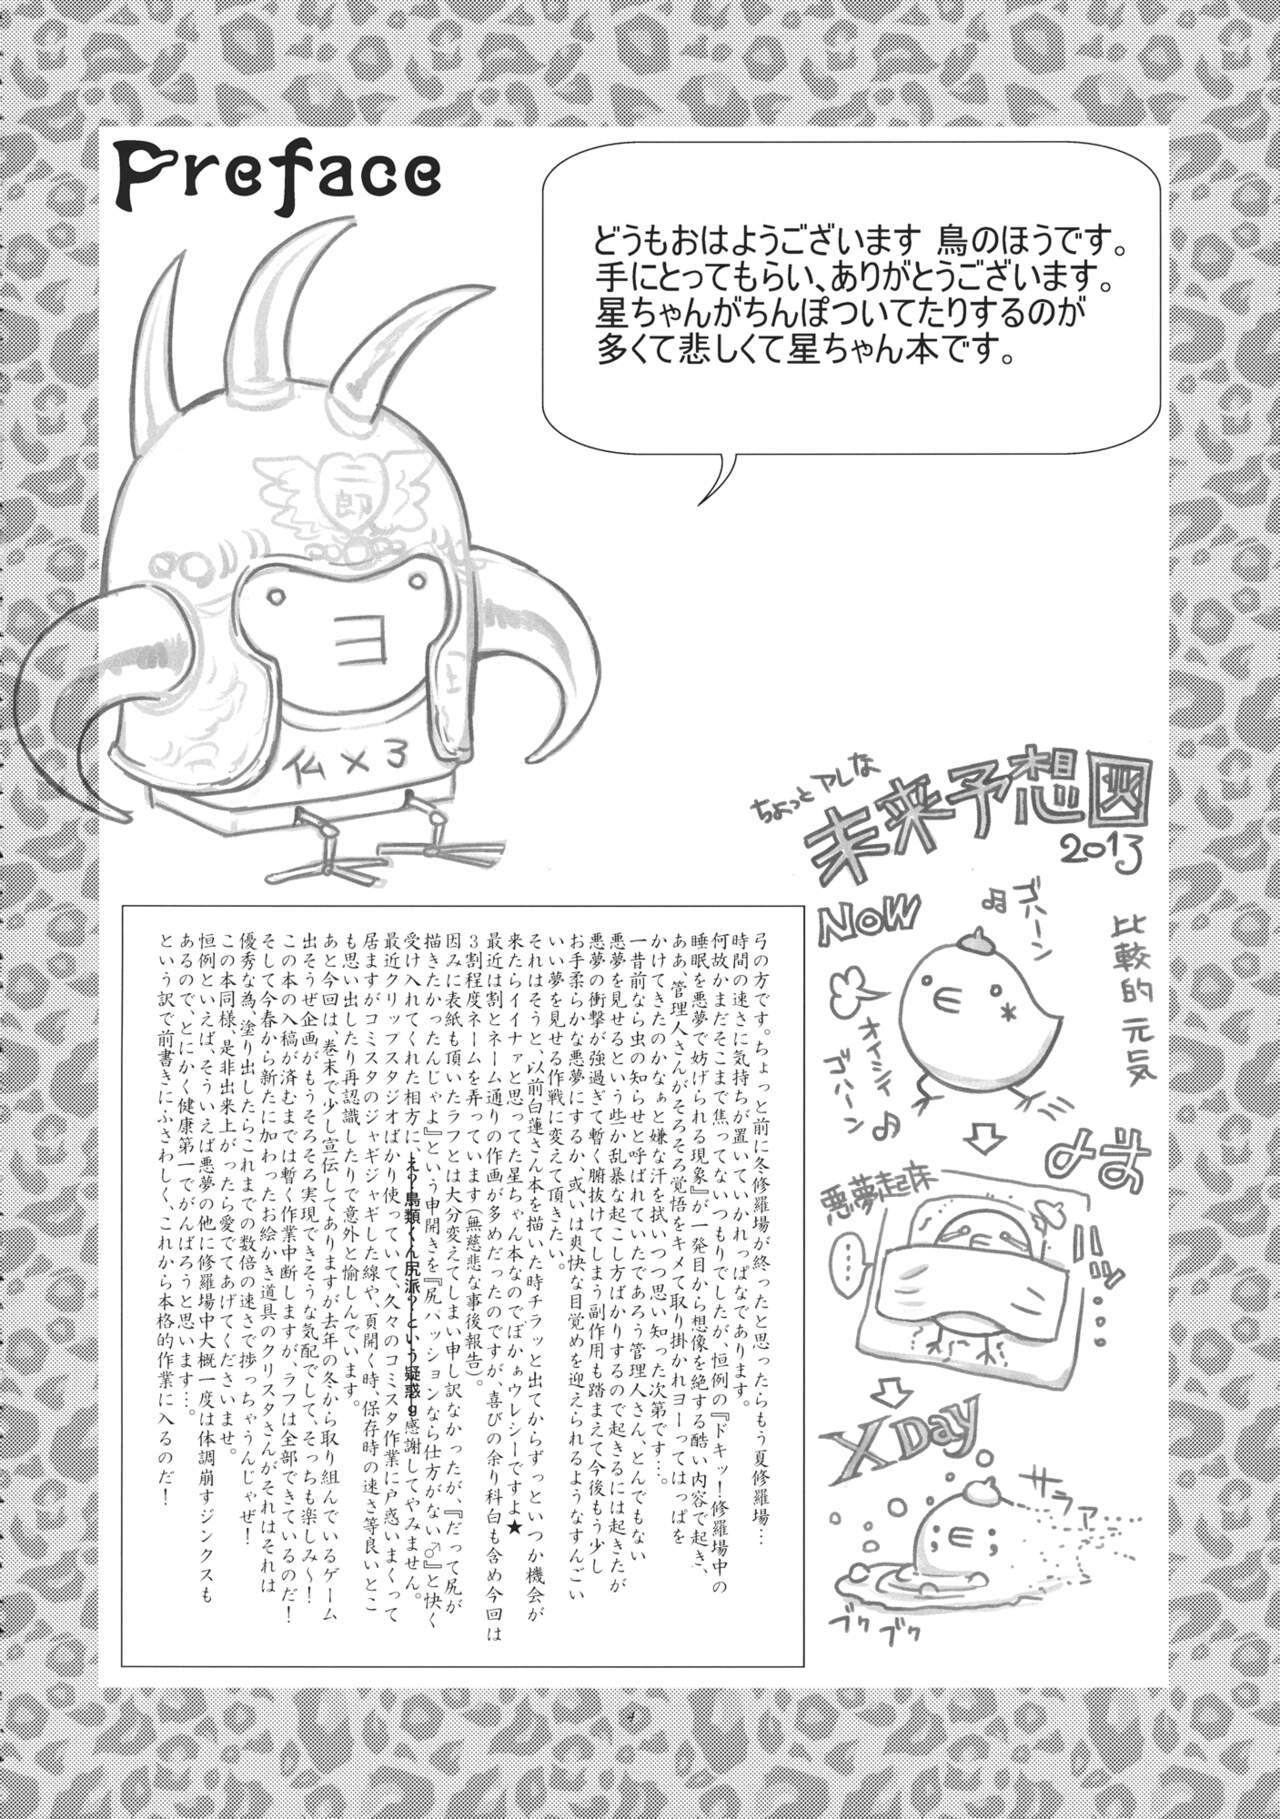 Preface
どうもおはようございます 鳥のほうです。
手にとってもらい、ありがとうございます。
星ちゃんがちんぽついてたりするのが
多くて悲しくて星ちゃん本です。
一郎
上
ヨ
仏×3
ちょっとアレな
未来予想図
2013
NOW
ゴハーン
比較的元気
オイシイ
ゴハーン
悪夢起床
……
X Day
サラァァ
ブクブク
弓の方です。ちょっと前に冬修羅場が終ったと思ったらもう夏修羅場…
時間の速さに気持ちが置いていかれっぱなであります。
何故かまだそこまで焦ってないつもりでしたが、恒例の『ドキッ！修羅場中の
睡眠を悪夢で妨げられる現象』が一発目から想像を絶する酷い内容で起き、
ああ、管理人さんがそろそろ覚悟をキメて取り掛かれヨーってはっぱを
かけてきたのかなぁと嫌な汗を拭いつつ思い知った次第です…。
一昔前なら虫の知らせと呼ばれていたであろう管理人さん、とんでもない
悪夢を見せるという些か乱暴な起こし方ばかりするので起きるには起きたが
悪夢の衝撃が強過ぎて暫く腑抜けてしまう副作用も踏まえて今後もう少し
お手柔らかな悪夢にするか、或いは爽快な目覚めを迎えられるようなすんごい
いい夢を見せる作戦に変えて頂きたい。
それはそうと、以前白蓮さん本を描いた時チラッと出てからずっといつか機会が
来たらイイナァと思ってた星ちゃん本なのでぼかぁウレシーですよ★
最近は割とネーム通りの作画が多めだったのですが、喜びの余り科白も含め今回は
3割程度ネームを弄っています（無慈悲な事後報告）。
因みに表紙も頂いたラフとは大分変えてしまい申し訳なかったが、『だって尻が
描きたかったんじゃよ』という申開きを『尻パッションなら仕方がない♂』と快く
受け入れてくれた相方に え？鳥類くん尻派？という疑惑g感謝してやみません。
最近クリップスタジオばかり使っていて、久々のコミスタ作業に戸惑いまくって
居ますがコミスタのジャギジャギした線や、頁開く時、保存時の速さ等良いとこ
も思い出したり再認識したりで意外と愉しんでいます。
あと今回は、巻末で少し宣伝してありますが去年の冬から取り組んでいるゲーム
出そうぜ企画がもうそろそろ実現できそうな気配でして、そっちも楽しみ～！
この本の入稿が済むまでは暫く作業中断しますが、ラフは全部できているのだ！
そして今春から新たに加わったお絵かき道具のクリスタさんがそれはそれは
優秀な為、塗り出したらこれまでの数倍の速さで捗っちゃうんじゃぜ！
この本同様、是非出来上がったら愛でてあげてくださいませ。
恒例といえば、そういえば悪夢の他に修羅場中大概一度は体調崩すジンクスも
あるので、とにかく健康第一でがんばろうと思います…。
という訳で前書きにふさわしく、これから本格的作業に入るのだ！
4